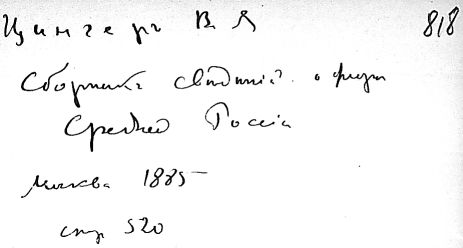 Цингеръ В. Я 818
Сборникъ свѣдѣній о флорѣ
Средней Россіи
Москва 1885
стр 520